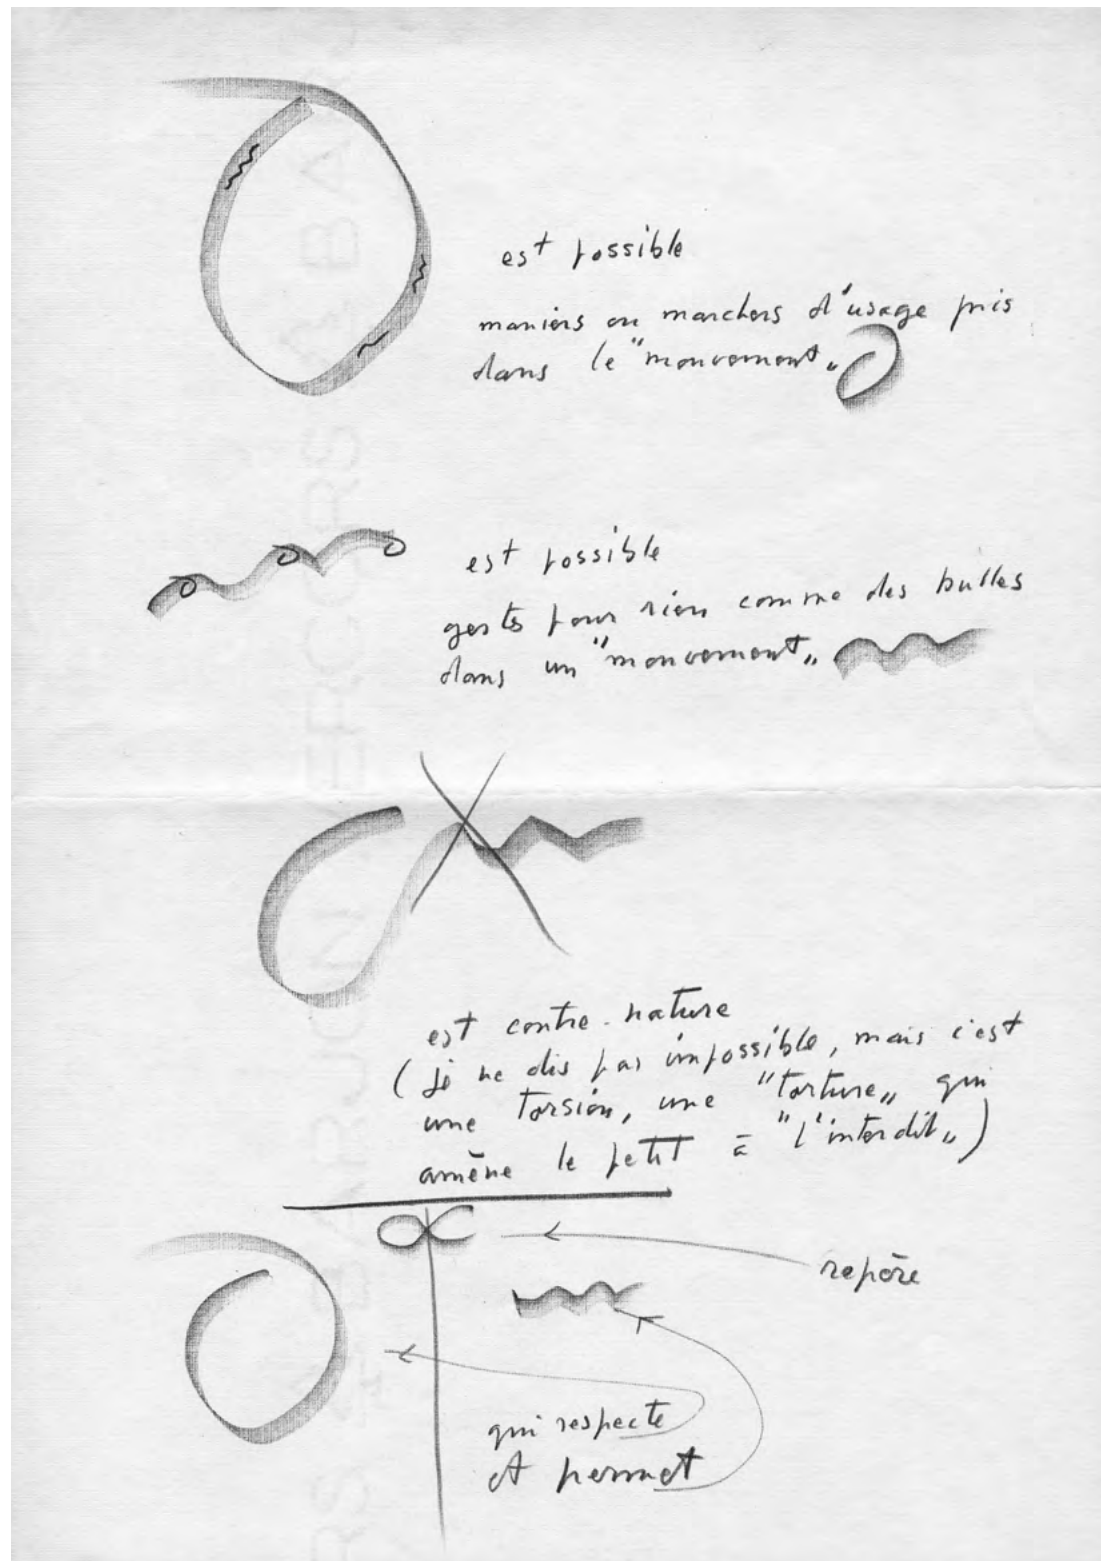 est possible
maniers ou marchers d'usage pris
dans le "mouvement"
est possible
gestes pour rien comme des bulles
dans un "mouvement"
est contre-nature
(je ne dis pas impossible, mais c'est
une torsion, une "torture" qui
amène le petit à "l'interdit")
repère
qui respecte
et permet